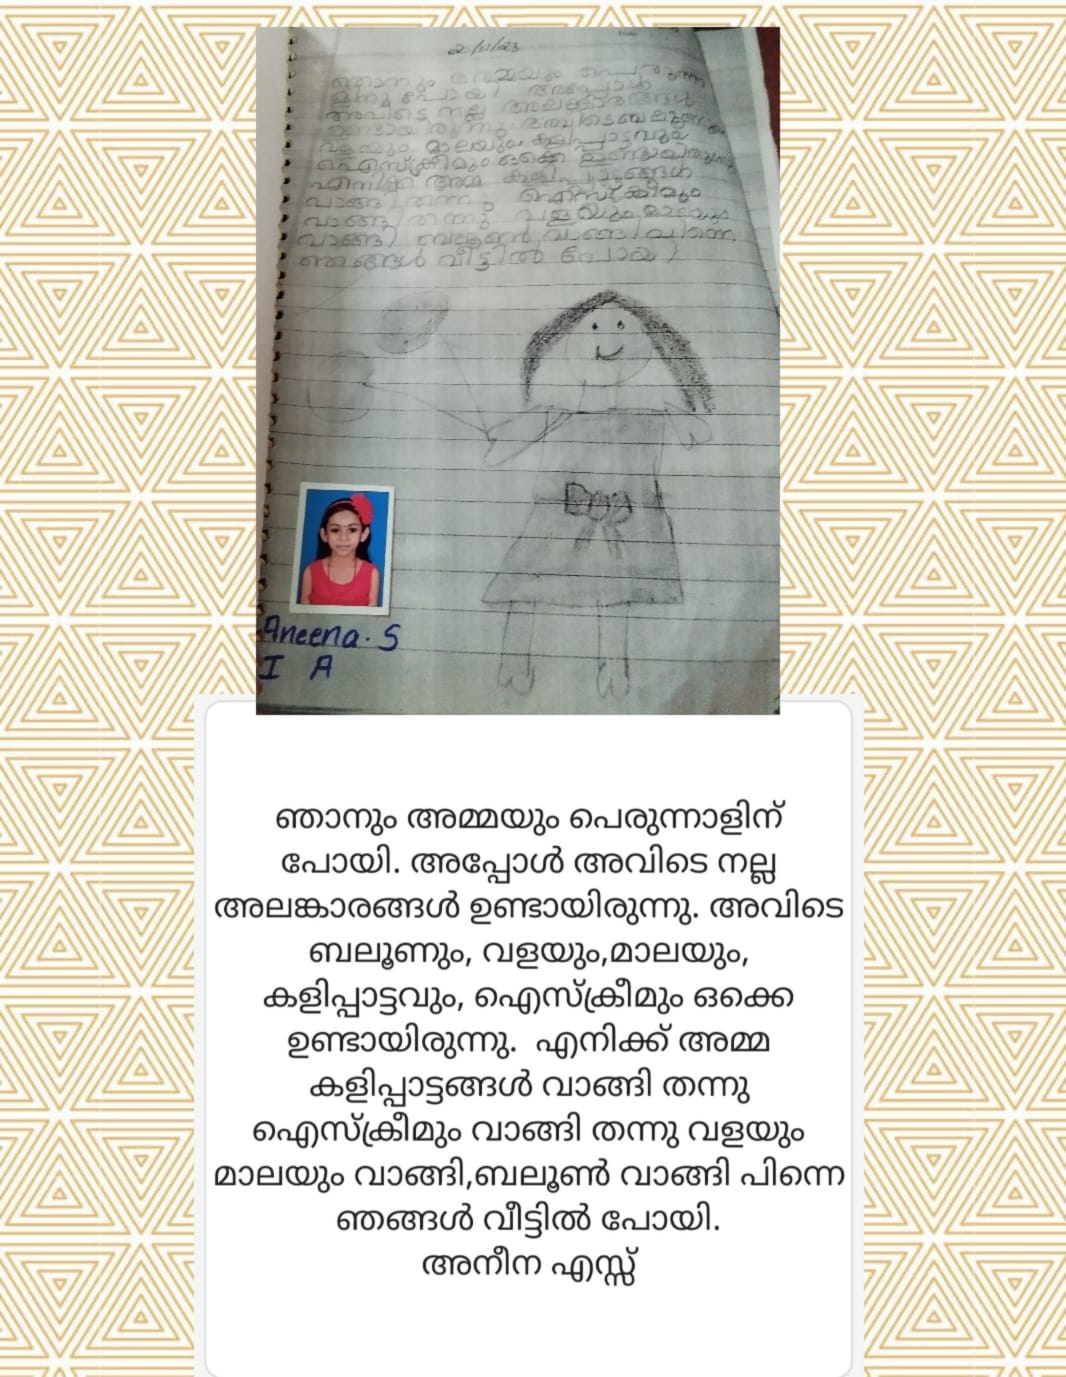 2/11/23
ഞാനും അമ്മയും പെരുന്ന
ളിനു പോയി അപ്പോൾ
അവിടെ നല്ല അലങ്കാരങ്ങൾ
ഉണ്ടായിരുന്നു അവിടെ ബലൂണും
വളയും മാലയും കളിപ്പാട്ടവും
ഐസ്ക്രീമും ഒക്കെ ഉണ്ടായിരുന്നു
എനിക്ക് അമ്മ കളിപ്പാട്ടങ്ങൾ
വാങ്ങി തന്നു ഐസ്ക്രീമും
വാങ്ങി തന്നു വളയും മാലയും
വാങ്ങി ബലൂൺ വാങ്ങി പിന്നെ
ഞങ്ങൾ വീട്ടിൽ പോയി
Aneena. S
I A
ഞാനും അമ്മയും പെരുന്നാളിന്
പോയി. അപ്പോൾ അവിടെ നല്ല
അലങ്കാരങ്ങൾ ഉണ്ടായിരുന്നു. അവിടെ
ബലൂണും, വളയും,മാലയും,
കളിപ്പാട്ടവും, ഐസ്ക്രീമും ഒക്കെ
ഉണ്ടായിരുന്നു. എനിക്ക് അമ്മ
കളിപ്പാട്ടങ്ങൾ വാങ്ങി തന്നു
ഐസ്ക്രീമും വാങ്ങി തന്നു വളയും
മാലയും വാങ്ങി,ബലൂൺ വാങ്ങി പിന്നെ
ഞങ്ങൾ വീട്ടിൽ പോയി.
അനീന എസ്സ്